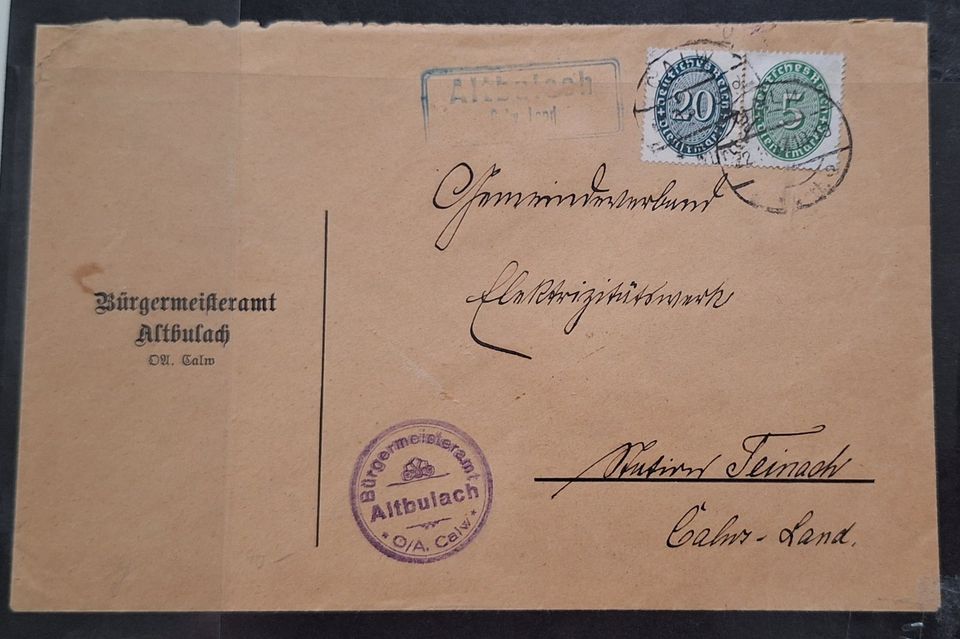 Altbulach
Calw Land
Deutsches Reich
20
Dienstmarke
Deutsches Reich
5
Dienstmarke
CALW
Gemeindeverband
Elektrizitätswerk
Station Teinach
Calw-Land.
Bürgermeisteramt
Altbulach
OA. Calw
Bürgermeisteramt
Altbulach
* O/A. Calw *